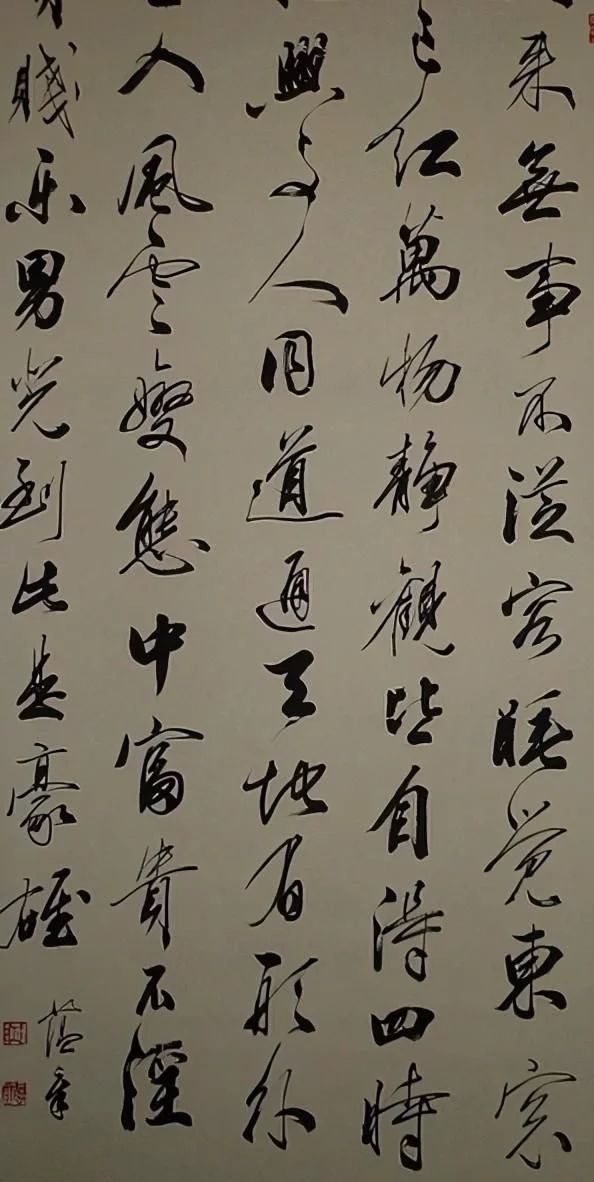 来無事不従容睡觉東窓
已红萬物静觀皆自得四時
興与人同道通天地有形外
入風雲變態中富貴不淫
賤乐男児到此是豪雄